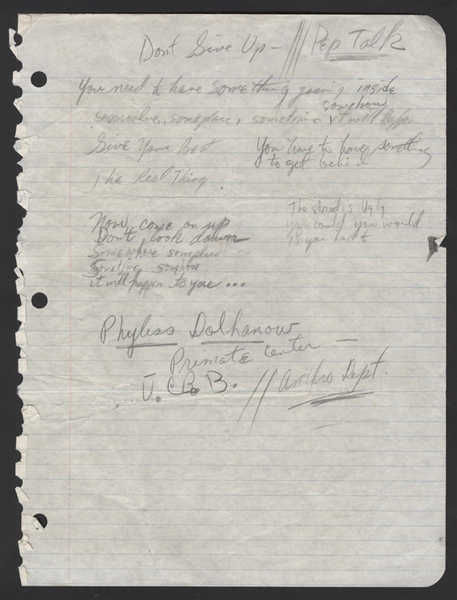 Dont Give Up — /// Pep Talk
You need to have something going inside
somewhere, someplace, sometime somehow it will happen
Give Your Best
You have to have something
to get behind
The Real Thing
Now come on up
Dont look down
Somewhere someplace
Sometime somehow
it will happen to you ...
The struggle is Ugly
you could you would
if you
Phyliss Dolhanow
Primate Center —
... U.C.B. // Anthro Dept.